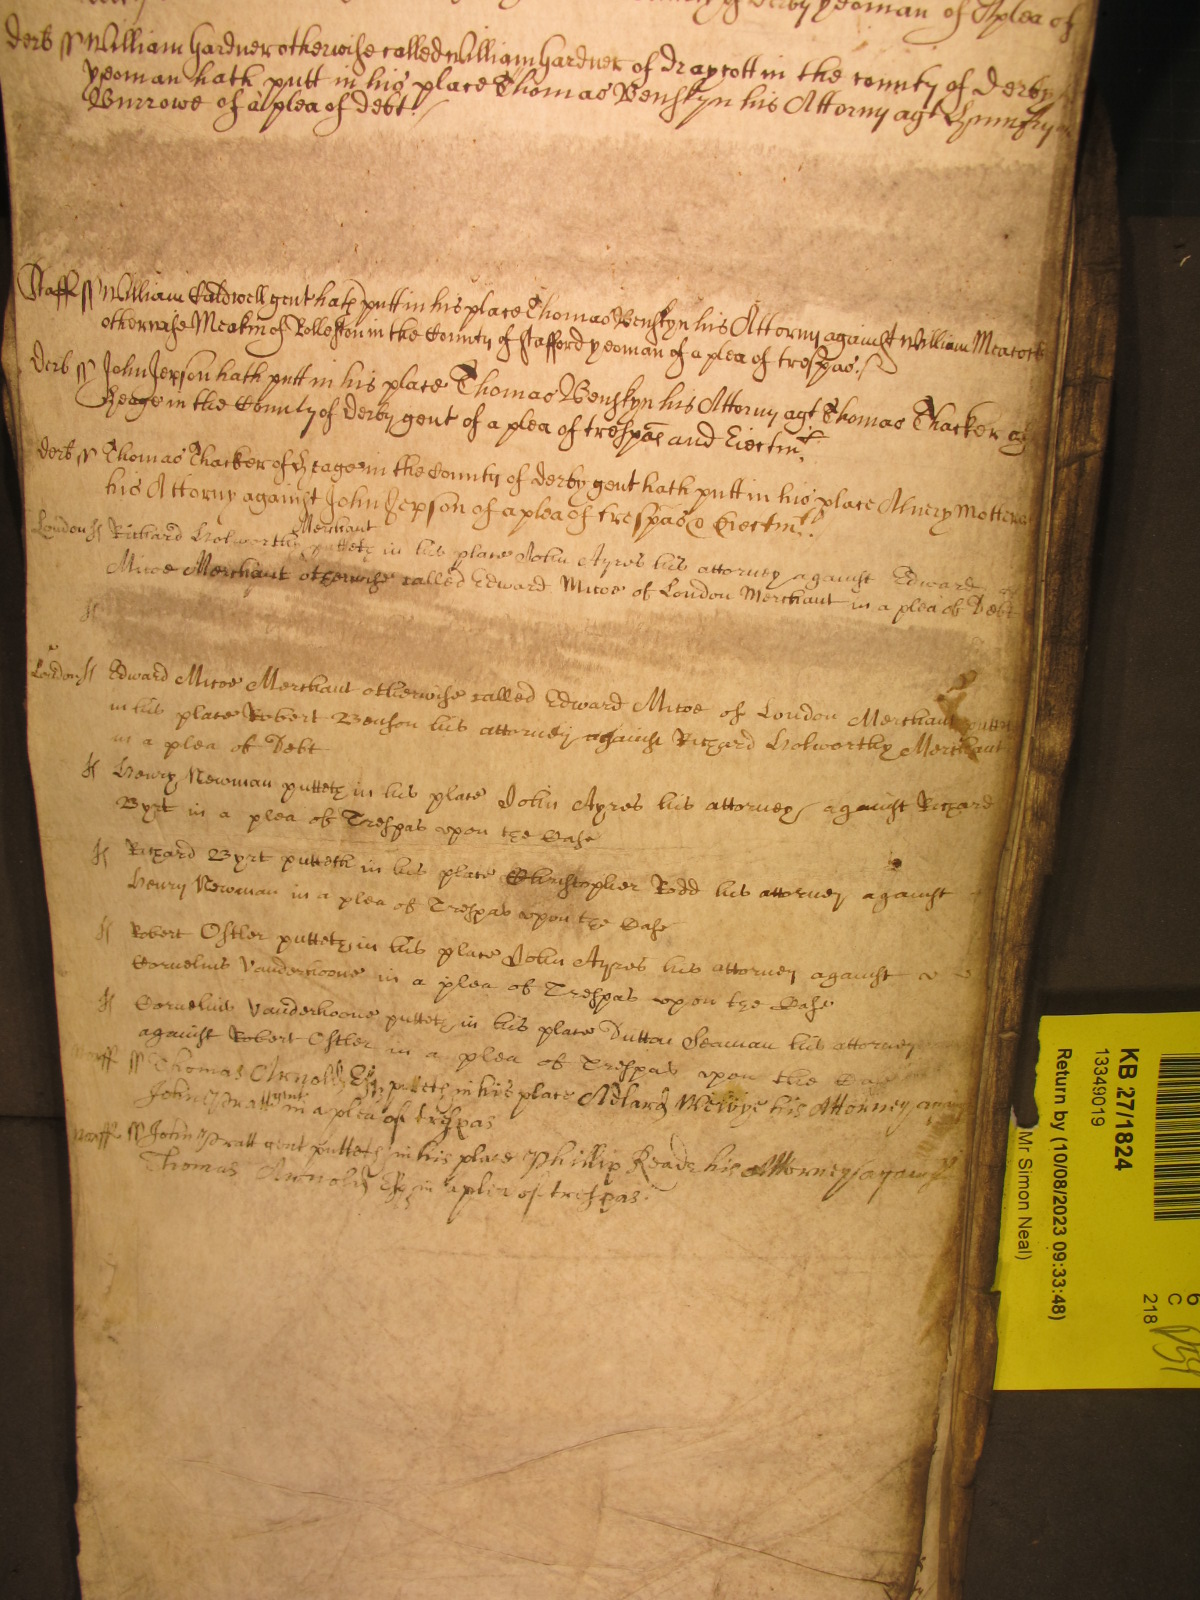 of Derby yeoman of A plea of
Derb ss William Gardner otherwise called William Gardner of Draycott in the county of Derby
yeoman hath putt in his place Thomas Benskyn his Attorny agt Humfry
Burrowe of a plea of debt
Staff ss William Caldwell gent hath putt in his place Thomas Benskyn his Attorny against William Meacock
otherwise Meakin of Rolleston in the County of Stafford yeoman of a plea of trespas.
Derb ss John Jepson hath putt in his place Thomas Benskyn his Attorny agt Thomas Thacker of
Heage in the County of Derby gent of a plea of trespas and Eiectmt
Derb ss Thomas Thacker of Heage in the County of Derby gent hath putt in his place Avery
his Attorny against John Jepson of a plea of trespas & Eiectmt
London ss Richard Holworthy Merchant putteth in his place John Ayres his attorney against Edward
Micoe Merchant otherwise called Edward Micoe of London Merchant in a plea of Debt
ss
London ss Edward Micoe Merchant otherwise called Edward Micoe of London Merchant puttet
in his place Robert Benson his attorney against Richard Holworthy Merchant
in a plea of Debt
ss Henry Newman putteth in his place John Ayres his attorney against Richard
Byrt in a plea of Trespas upon the Case
ss Richard Byrt putteth in his place Christopher Rodd his attorney against
Henry Newman in a plea of Trespas upon the Case
ss Robert Ostler putteth in his place John Ayres his attorney against
Cornelius Vanderhoone in a plea of Trespas upon the Case
ss Cornelius Vanderhoone putteth in his place Dutton Seaman his attorney
against Robert Ostler in a plea of Trespas upon the Case
Norff ss Thomas Arnold Esqr putteth in his place Adlard his Attorney against
John Pratt gent in a plea of trespas
Norff ss John Pratt gent putteth in his place Phillip Reade his Attorney against
Thomas Arnold Esqr in a plea of trespas.
KB 27/1824
13349019
Return by (10/08/2023 09:33:48)
Mr Simon Neal)
6
C
218